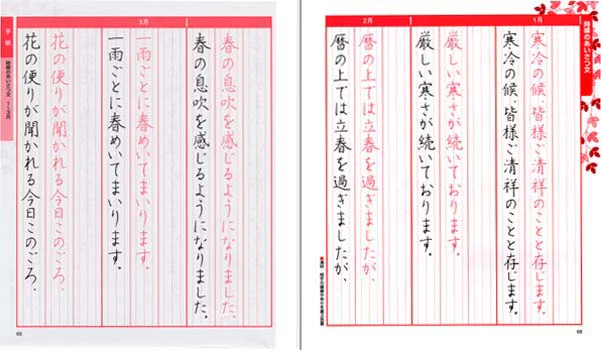 時候のあいさつ文
1月
寒冷の候、皆様ご清祥のことと存じます。
寒冷の候、皆様ご清祥のことと存じます。
厳しい寒さが続いております。
厳しい寒さが続いております。
2月
暦の上では立春を過ぎましたが、
暦の上では立春を過ぎましたが、
68
3月
春の息吹を感じるようになりました。
春の息吹を感じるようになりました。
一雨ごとに春めいてまいります。
一雨ごとに春めいてまいります。
花の便りが聞かれる今日このごろ、
花の便りが聞かれる今日このごろ、
手紙
時候のあいさつ文
1〜3月